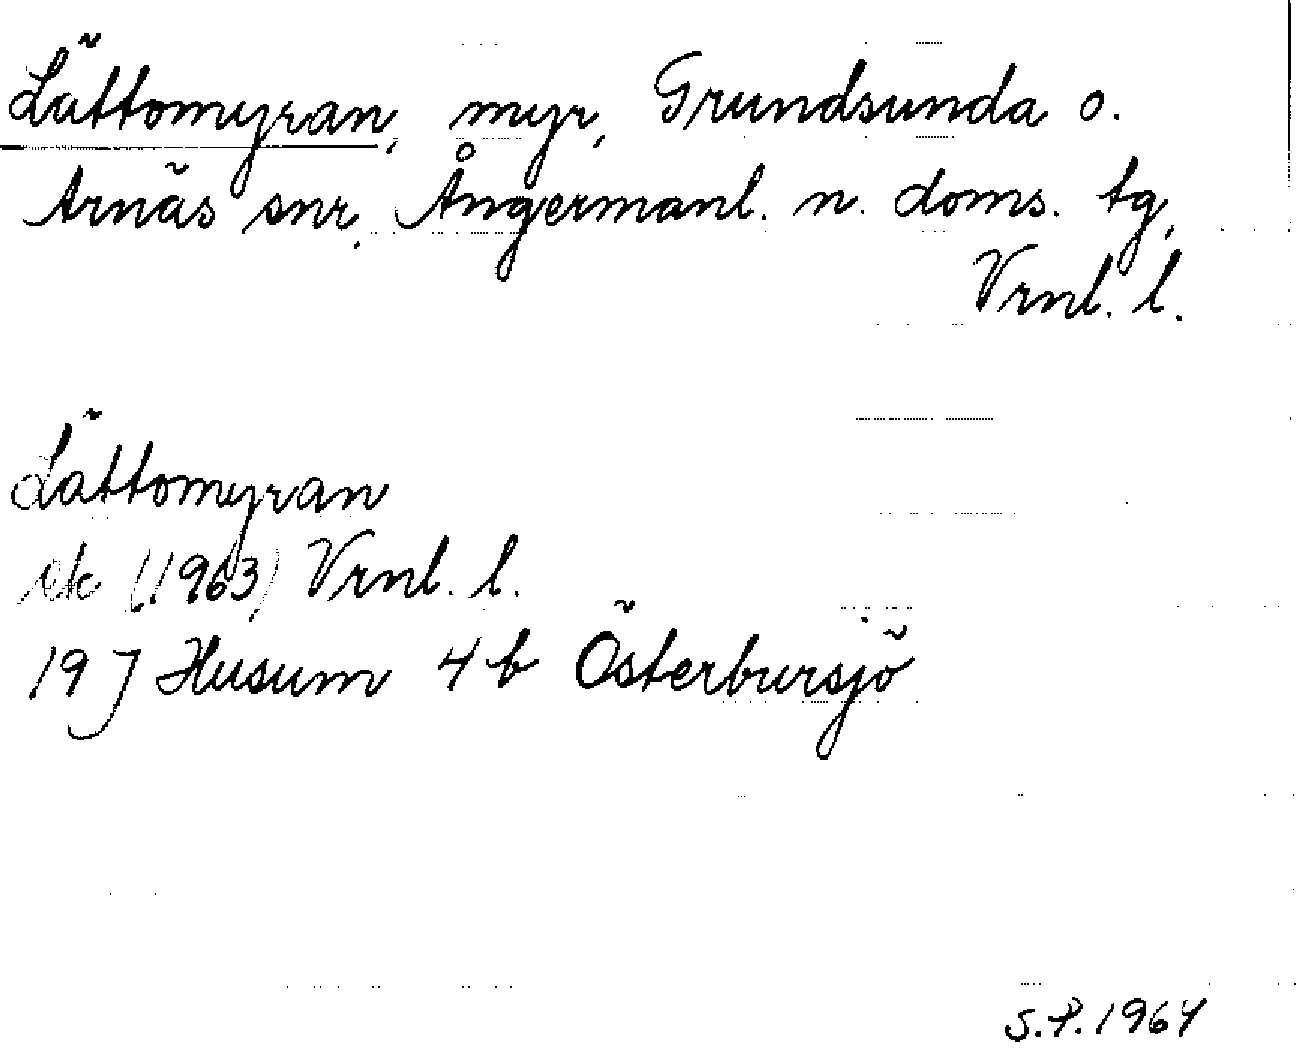 Lättomyran, myr, Grundsunda o.
Arnäs snr, Ångermanl. n. doms. tg,
Vrnl. l.
Lättomyran
ek (1963) Vrnl. l.
19 J Husum 4 b Östersbursjö
S.P. 1964